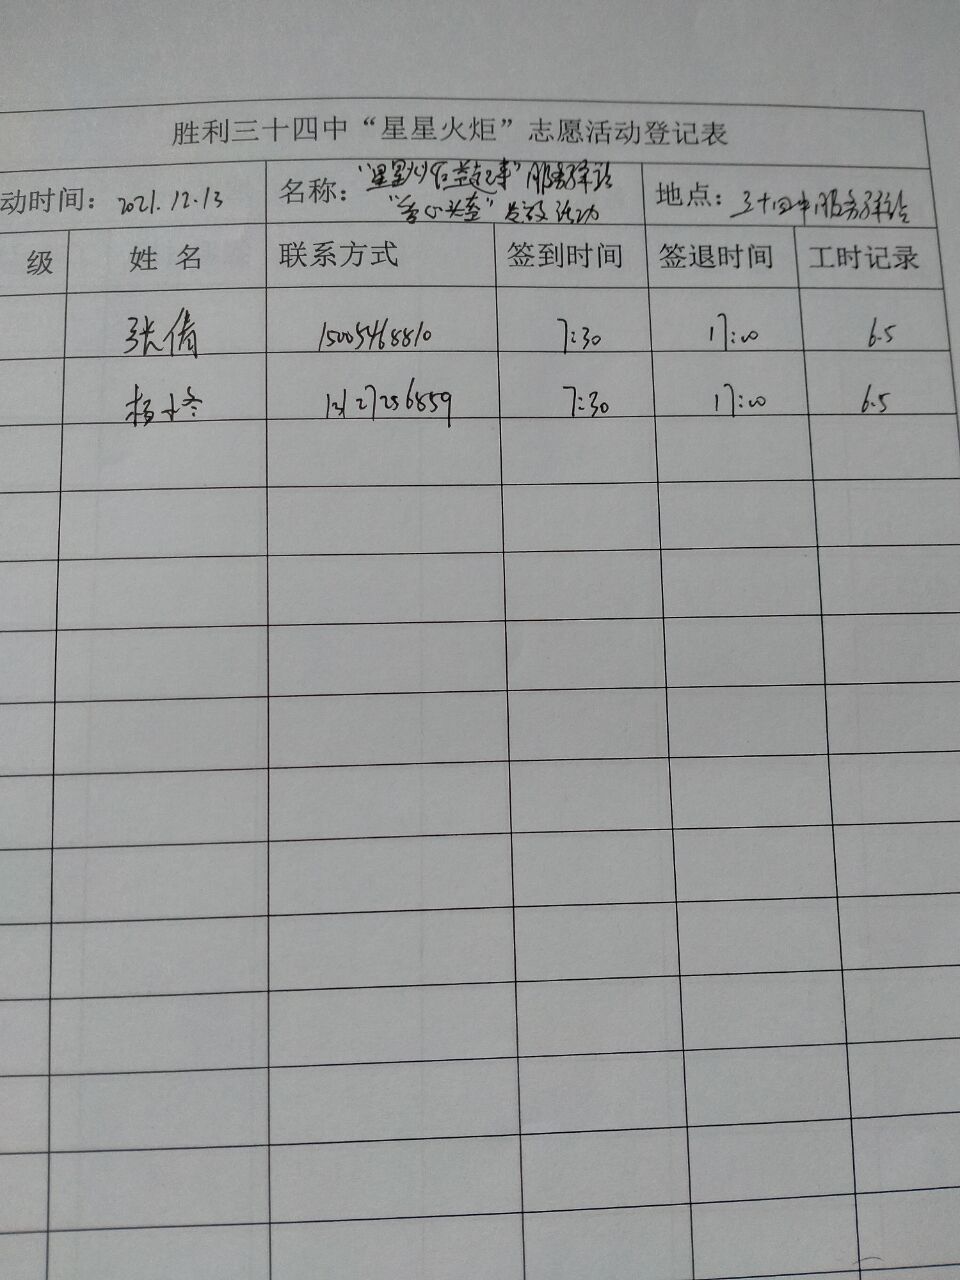 胜利三十四中“星星火炬”志愿活动登记表
动时间：2021.12.13 名称：“星星火炬益起来”服务驿站 地点：三十四中服务驿站
“爱心 ”发放活动
级 姓名 联系方式 签到时间 签退时间 工时记录
张倩 15005468810 7:30 17:00 6.5
杨 13127256859 7:30 17:00 6.5